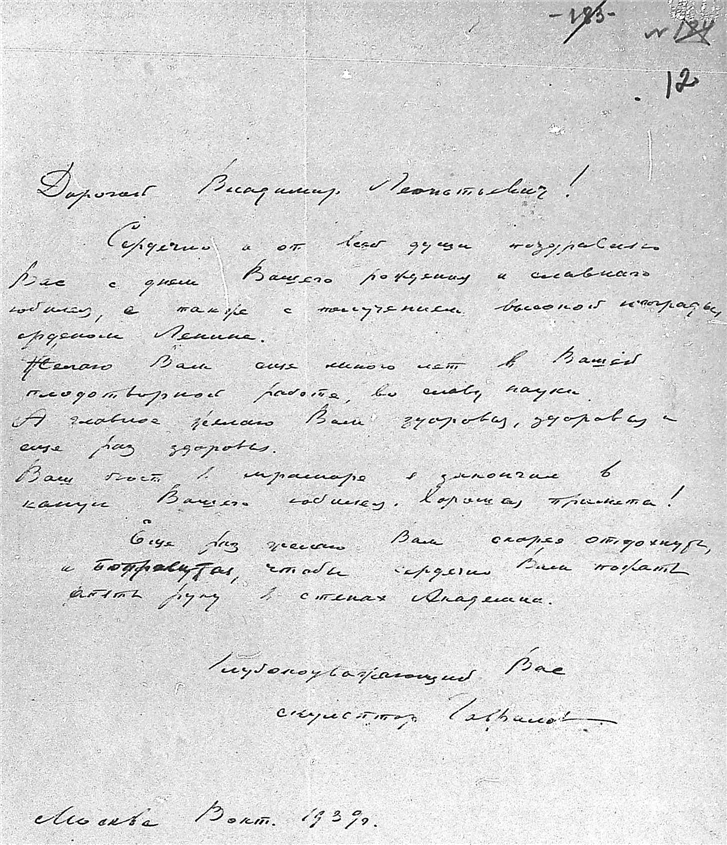 -183-
№ 184
12
Дорогой Владимир Леонтьевич!
Сердечно и от всей души поздравляю
Вас с днем Вашего рождения и славного
юбилея, а также с получением высокой награды,
орденом Ленина.
Желаю Вам еще много лет в Вашей
плодотворной работе, во славу науки.
А главное желаю Вам здоровья, здоровья и
еще раз здоровья.
Ваш бюст в мраморе я закончил в
канун Вашего юбилея. Хорошая примета!
Еще раз желаю Вам скорее отдохнуть,
и поправиться, чтобы сердечно Вам пожать
опять руку в стенах Академии.
Глубокоуважающий Вас
скульптор
Москва 8 окт. 1939 г.